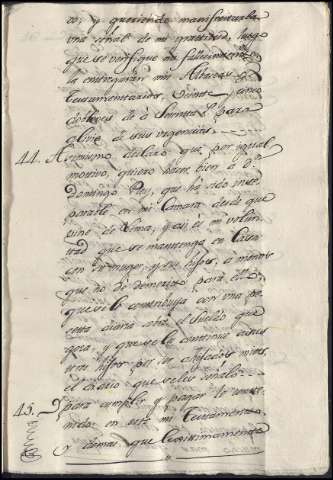 co, y queriendo manifestarla
una señal de mi gratitud, luego
que se verifique mi fallecimiento
la entregarán mis Albaceas
Testamentarios, Veinte y cinco
doblones de à Sesenta r.s para
alivio de sus urgencias.
44. Asimismo declaro que por igual
motivo, quiero hacer bien a d.n
Domingo que ha sido inse
parable en mi Camara desde que
vino de Lima, y asi es mi volun
tad que se mantenga en Casa
con su muger, y sus hijos, a menos
que no de demerito para ello
que se le contribuya con una pe
seta diaria sobre el Sueldo que
goza, y que se le continue a sus
tres hijos por su enseñados mios,
el diario que se les señaló.
45. Y para cumplir y pagar lo conte
nido en este mi Testamento
y demas que legitimamente